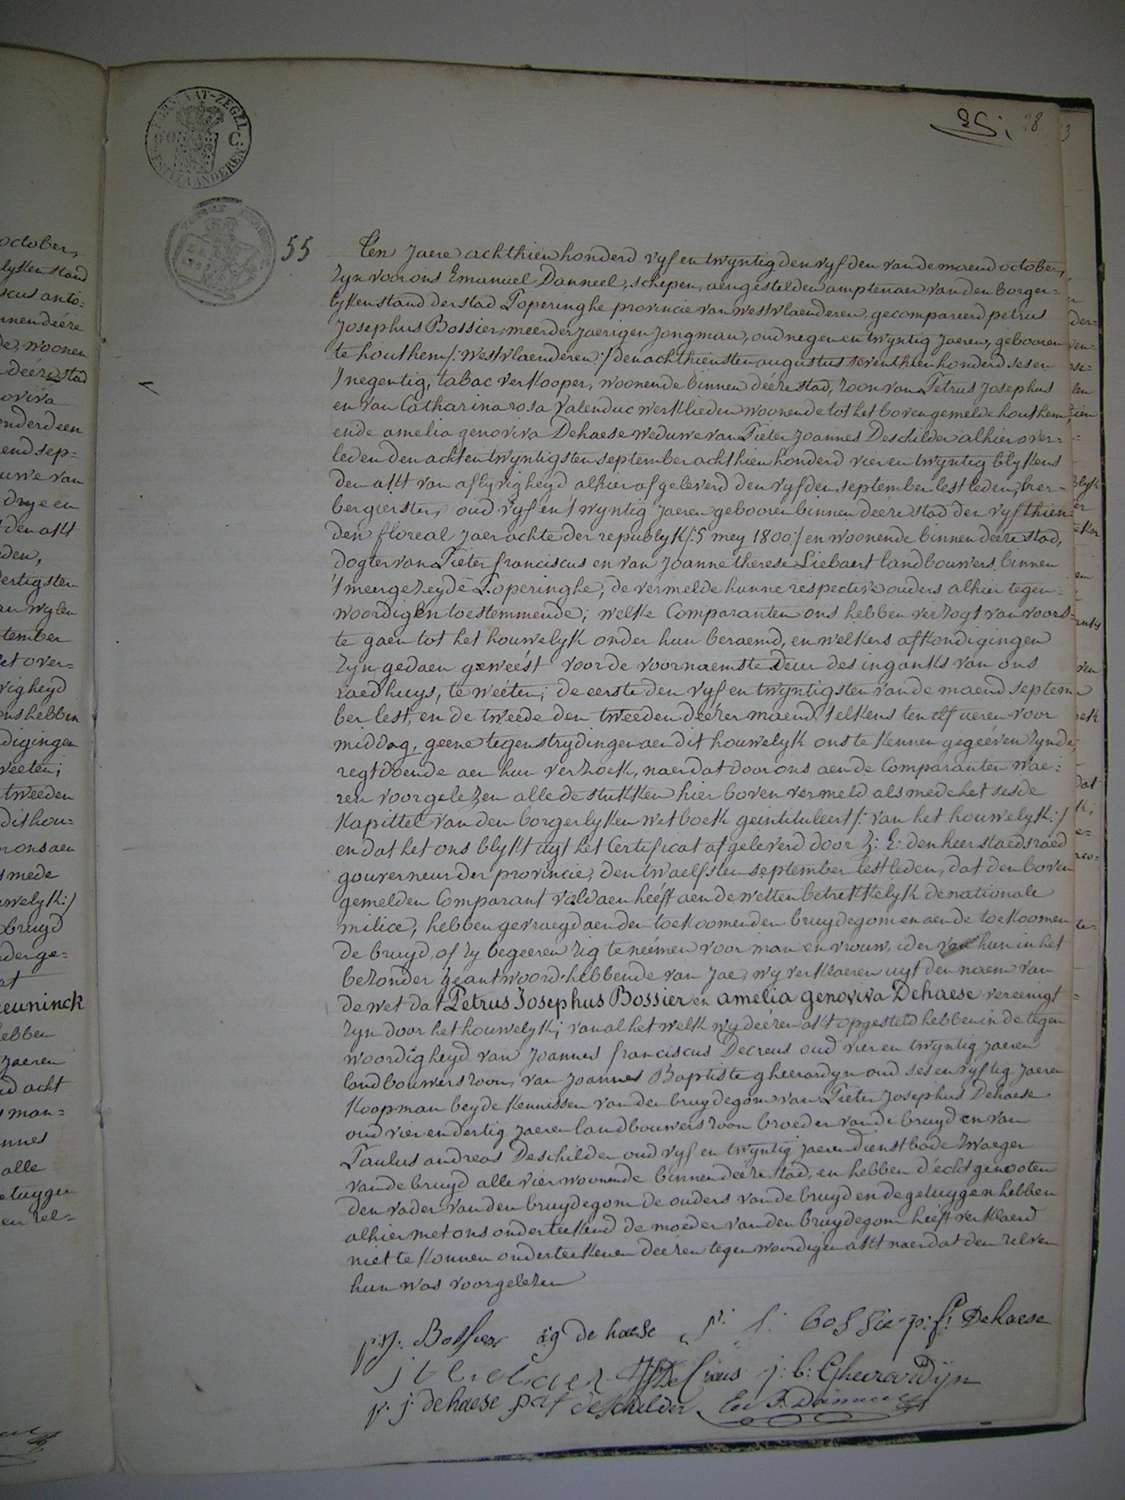 25 ; 28
55
Ten Jaere achthien honderd vyf en twyntig den vyfden van de maend october,
zyn voor ons Emanuel Danneel, schepen, aengestelden amptenaer van den borger-
lyken stand der stad Poperinghe provincie van westvlaenderen, gecompareerd petrus
Josephus Bossier, meerderjaerigen jongman, oud negen en twyntig Jaeren, gebooren
te houthem /: westvlaenderen :/ den achthiensten augustus seventhien honderd ses en
'tnegentig, tabac verkooper, woonende binnen deeze stad, zoon van Petrus Josephus
en van Catharina rosa Valenduc werklieden woonende tot het boven gemelde houthem,
ende amelia genoviva Dehaese weduwe van Pieter Joannes Deschilder alhier over-
leden den acht en twyntigsten september achthien honderd vier en twyntig blykens
den akt van aflyvigheyd alhier afgeleverd den vyfden september lest leden, her-
bergierster, oud vyf en 'twyntig Jaeren gebooren binnen deeze stad den vyfthien-
den floreal Jaer achte der republyk /: 5 mey 1800 :/ en woonende binnen deeze stad,
dogter van Pieter franciscus en van Joanne therese Liebaert landbouwers, binnen
'tmeergezeyde Poperinghe, de vermelde hunne respective ouders alhier tegen-
woordig en toestemmende; welke Comparanten ons hebben verzogt van voord-
te gaen tot het houwelyk onder hun beraemd, en welkers afkondigingen
zyn gedaen geweést voor de voornaemste deur des ingangs van ons
raedhuys, te weéten; de eerste den vyf en twyntigsten van de maend septem-
ber lest, en de tweede den tweeden deézer maend, telkens ten elf ueren voor
middag, geene tegenstrydingen aen dit houwelyk ons te kennen gegeéven zynde,
regtdoende aen hun verzoek, naer dat door ons aen de Comparanten wae-
ren voorgelezen alle de stukken hier boven vermeld als mede het sesde
kapittel van den borgerlyken wetboek geintituleert /: van het houwelyk :/
en dat het ons blykt uyt het Certificat afgeleverd door Z: E: den heer staedsraed
gouverneur der provincie, den twaelfsten september lest leden, dat den boven
gemelden Comparant voldaen heéft aen de wetten betrekkelyk de nationale
milice, hebben gevraegd aen den toekoomenden bruydegom en aen de toekoomen-
de bruyd, of zy begeeren zig te neémen voor man en vrouw, ider van hun in het
bezonder geantwoord hebbende van Jae, wy verklaeren uyt den naem van
de wet dat Petrus Josephus Bossier en amelia genoviva Dehaese vereenigt
zyn door het houwelyk; van al het welk wy deézen akt opgesteld hebben in de tegen
woordigheyd van Joannes franciscus Decreus oud vier en twyntig jaeren
landbouwers zoon, van Joannes Baptiste gheerardyn oud ses en vyftig jaeren
koopman beyde kennissen van den bruydegom van Pieter Josephus Dehaese
oud vier en dertig jaeren landbouwers zoon broeder van de bruyd en van
Paulus andreas Deschilder oud vyf en twyntig jaeren dienstbode zwaeger
van de bruyd alle vier woonende binnen deeze stad, en hebben d'echtgenooten
den vader van den bruydegom de ouders van de bruyd en de getuygen hebben
alhier met ons onderteekend de moeder van den bruydegom heéft verklaerd
niet te konnen onderteekenen deézen tegenwoordigen akt naer dat den zelven
hun was voorgelezen
p.j. Bossier a:g de haese p: j: bossier p: f: Dehaese
j t liebaer JF De Creus j: b: Gheerardÿn
p: j: dehaese p a deschilder Em F Danneel